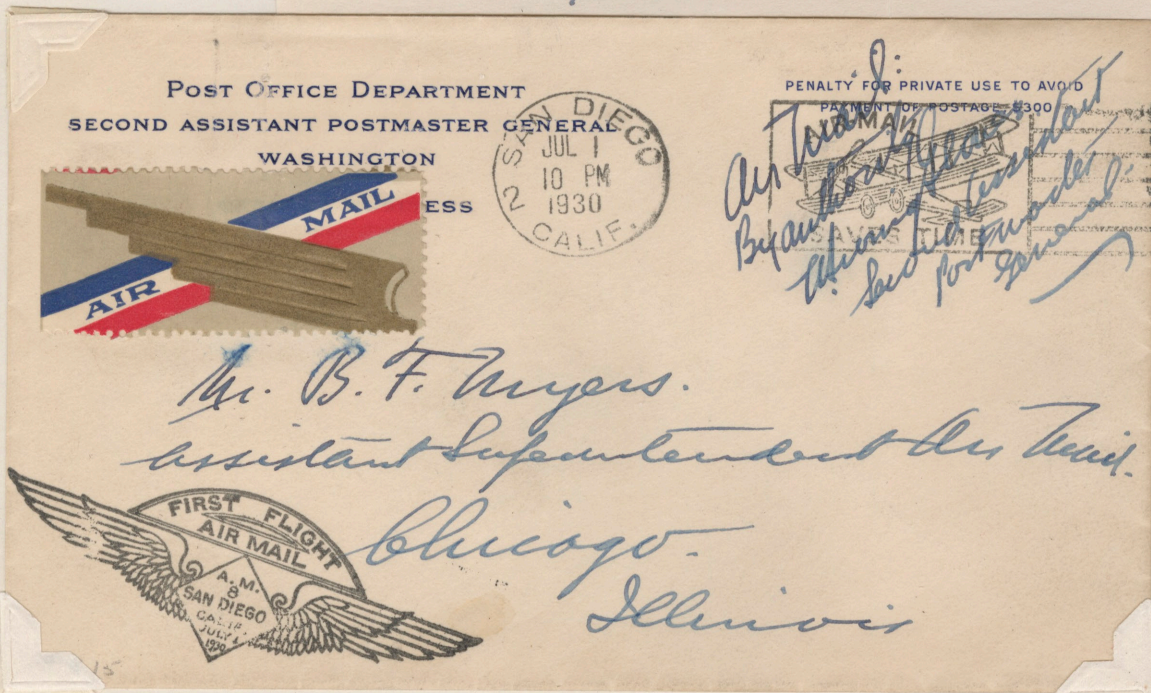 POST OFFICE DEPARTMENT
SECOND ASSISTANT POSTMASTER GENERAL
WASHINGTON
ESS
SAN DIEGO
JUL 1
10 PM
1930
2 CALIF.
PENALTY FOR PRIVATE USE TO AVOID
PAYMENT OF POSTAGE, $300
AIR MAIL
SAVES TIME
Air Mail:
By authority
Second Assistant
Postmaster
General.
MAIL
AIR
Mr. B. F. Myers.
Assistant Superintendent Air Mail.
Chicago.
Illinois
FIRST FLIGHT
AIR MAIL
A. M.
8
SAN DIEGO
CALIF.
JULY 1
1930
15